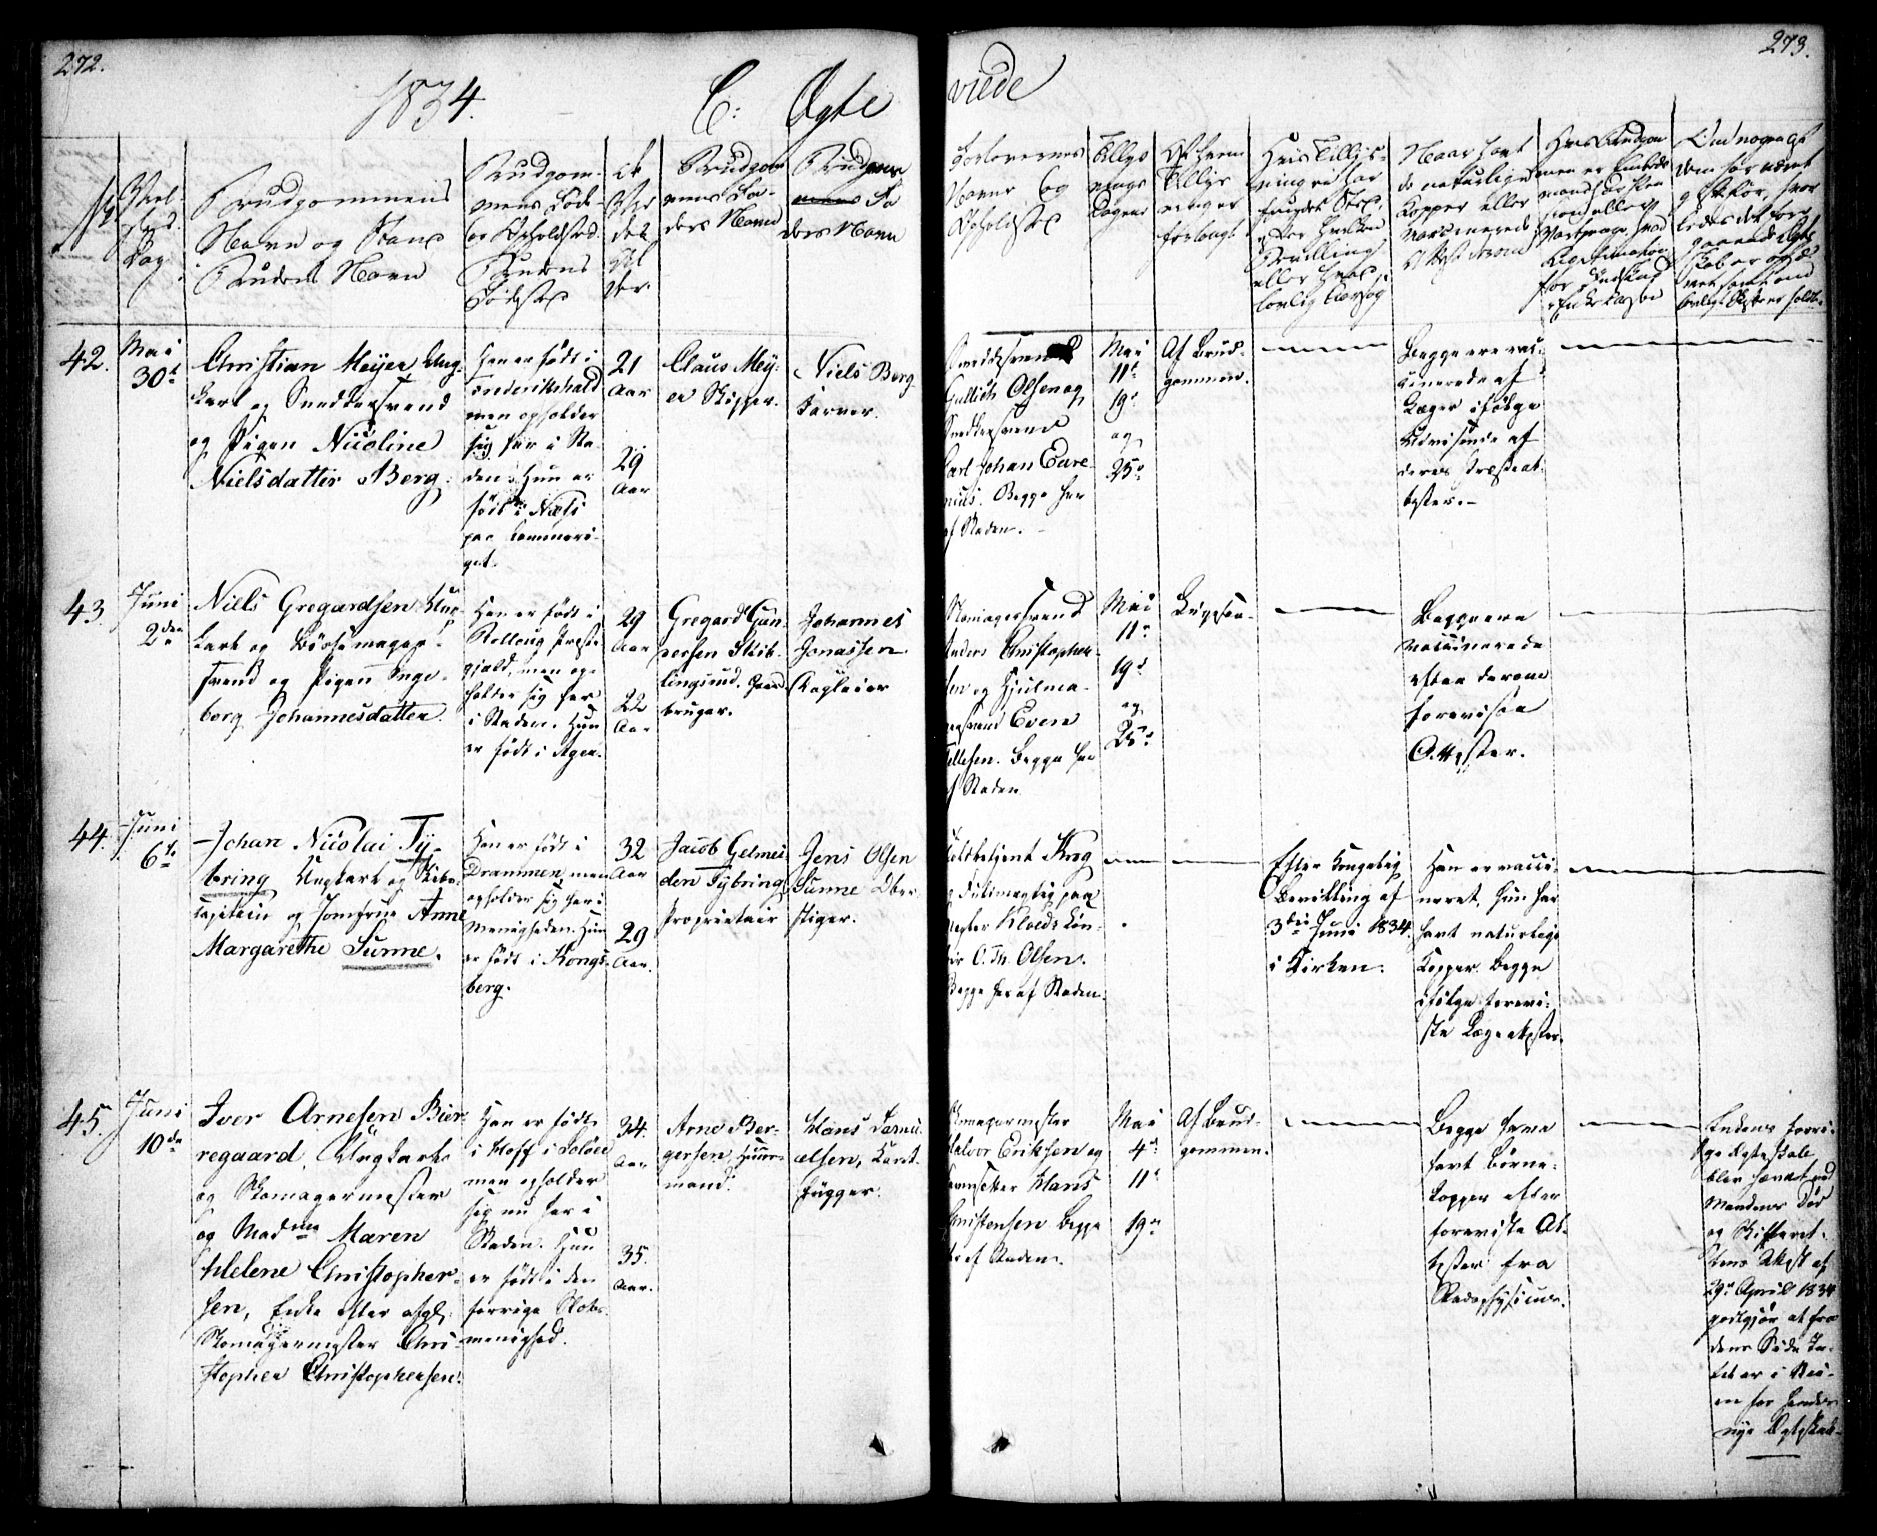 272.
1834.
C: Ægte
viede
273.
No
Viel-
sens
Dag
Brudgommens
Navn og Stand
Brudens Navn
Brudgom-
mens Føde-
og Opholdsted.
Brudens
Fødested
de
Vi-
des
Al
der
Brudgom
mens Fa-
ders Navn
Brudens
Fa
ders Navn
Forlovernes
Navne og
Opholdsted
Tillys
nings
Dagene
Af hvem
Tillys
ning er
forlangt
Naar havt
de naturlige
Kopper eller
vaccinerede
42.
Mai
30te
Christian Meyer Ung-
karl og Snedkersvend
og Pigen Nicoline
Nielsdatter Berg.
Han er født i
Frederikshald
men opholder
sig her i Sta-
den. Hun er
født i Næs
paa Rommeri-
get.
21
Aar
29
Aar
Claus Mey-
er Skipper.
Niels Berg
Farver.
Snedkersvend
Gullich Olsen og
Snedkersvend
Carl Johan Eure-
nius. Begge her
af Staden.
Mai
11te
19de
og
25de
Af Brud-
gommen.
Begge ere vac-
cinerede af
Læger ifølge
Udvisende af
deres Præsteat-
tester.
43.
Juni
2den
Niels Gregardsen Ung-
karl og Børsemager-
svend og Pigen Inge-
borg Johannesdatter.
Han er født i
Rolloug Præste-
gjæld, men op-
holder sig her
i Staden. Hun
er født i Ager.
29
Aar
22
Aar
Gregard Gun-
dersen Skib-
lingsrud. Gaard-
bruger.
Johannes
Jonassen
Røgleier
Skomagersvend
Anders Christopher-
sen og Hjulma-
gersvend Even
Tellefsen. Begge her
af Staden
Mai
11te
19de
og
25de
Begge ere
vaccinerede
efter derom
foreviste
Attester.
44.
Juni
6te
Johan Nicolai Ty-
bring Ungkarl og Skibs-
capitein og Jomfrue Anne
Margarethe Sunne.
Han er født i
Drammen, men
opholder sig her i
Menigheden. Hun
er født i Kongs-
berg.
32
Aar
29
Aar.
Jacob Gelmei-
den Tybring
Proprietair
Jens Olsen
Sunne Ober-
stiger.
Toldbetjent Krog
og Fuldmægtig paa
C. M. Olsen.
Begge her af Staden.
Efter Kongelig
Bevilling af
3die Juni 1834.
i Kirken.
Han er vacci-
neret, hun har
havt naturlige
Kopper. Begge
ifølge forevi-
ste Lægeattester.
45.
Juni
10de
Iver Arnesen Bier-
regaard, Ungkarl
og Skomagermester
og Madme Maren
Helene Christopher-
sen, Enke efter afgl.
Skomagermester Chri-
stopher Christophersen.
Han er født
i Hoff i Soløer
men opholder
sig nu her i
Staden. Hun
er født i den
herrige Slots-
menighed.
34.
Aar
35.
Aar.
Arne Ber-
gersen, Huus-
mand.
Hans Dani-
elsen, Karet-
bygger.
Skomagermester
Halvor Eriksen og
Hans
Christensen Begge
her af Staden.
Mai
4de
11te
19de
Af Brud-
gommen.
Begge have
havt Børne-
kopper efter
foreviste At-
tester fra
Stadsphysicus.
Enkens forri-
ge Ægteskab
blev hævet ved
Mandens Død
og Skifteret-
tens Attest af
29de April 1834
godtgjør at fra
dens Side In-
tet er i Vei-
en for hendes
nye Ægteskab.